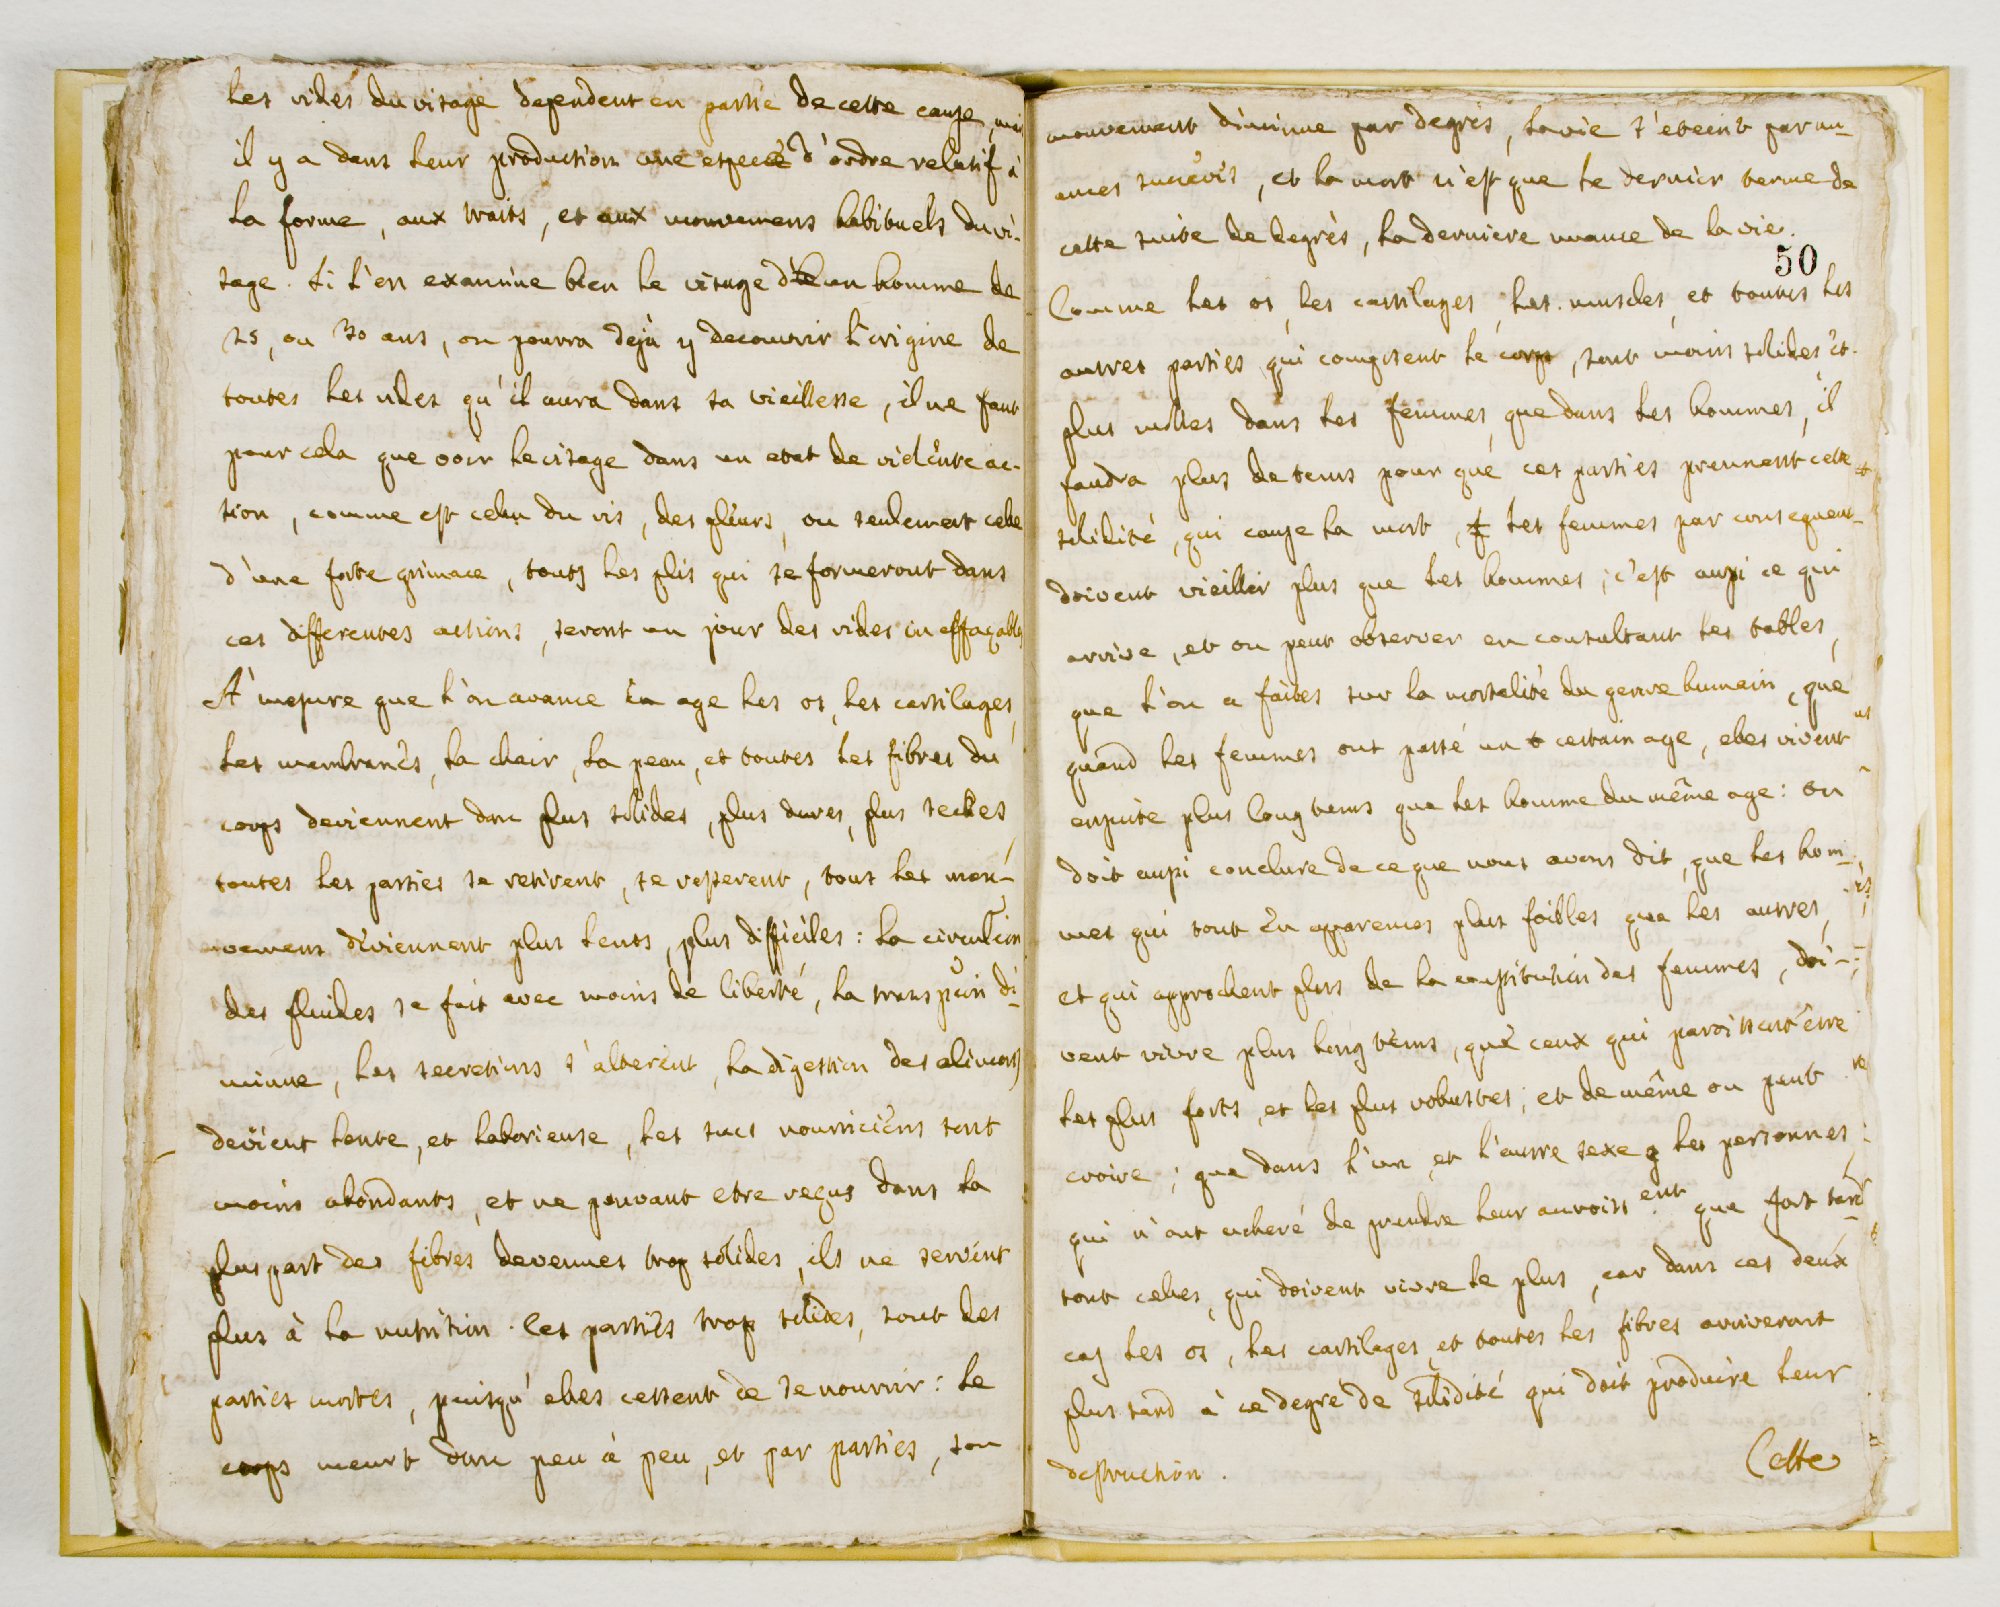 les rides du visage dependent en partie de cette cause, mai
il y a dans leur production une espece d'ordre relatif à
la forme, aux traits, et aux mouvemens habituels du vi-
sage. Si l'on examine bien le visage d'un homme de
25, ou 30 ans, on pourra dejà y decouvrir l'origine de
toutes les rides qu'il aura dans sa vieillesse, il ne faut
pour cela que voir le visage dans un etat de violente ac-
tion, comme est celui du ris, des pleurs, ou seulement celle
d'une forte grimace, touts les plis qui se formeront dans
ces differentes actions, seront un jour des rides ineffaçables
A' mesure que l'on avance en age les os, les cartilages,
les membranes, la chair, la peau, et toutes les fibres du
corps deviennent donc plus solides, plus dures, plus seches,
toutes les parties se retirent, se resserent, tous les mou-
vemens deviennent plus lents, plus difficiles: la circulation
des fluides se fait avec moins de liberté, la transpion di-
minue, les secretions s'alterent, la digestion des alimens
devient lente, et laborieuse, les sucs nourriciers sont
moins abondants, et ne pouvant etre reçus dans la
plus part des fibres devenues trop solides, ils ne servent
plus à la nutrition. Ces parties trop solides, sont des
parties mortes, puisqu' elles cessent de se nourrir: le
corps meurt donc peu à peu, et par parties, son
mouvement diminue par degrés, la vie s'eteint par nu-
ances succevis, et la mort n'est que le dernier terme de
cette suite de degrés, la derniere nuance de la vie.
50
Comme les os, les cartilages, les muscles, et toutes les
autres parties qui composent le corps, sont moins solides, et
plus molles dans les femmes, que dans les hommes, il
faudra plus de tems pour que ces parties prennent cette
solidité, qui cause la mort, les femmes par consequent
doivent vieillir plus que les hommes; c'est aussi ce qui
arrive, et on peut observer en consultant les tables,
que l'on a faites sur la mortalité du genre humain, que
quand les femmes ont passé un certain age, elles vivent
ensuite plus long tems que les homme du même age: on
doit aussi conclure de ce que nous avons dit, que les hom-
mes qui sont en apparences plus foilles que les autres,
et qui approchent plus de la constitution des femmes, doi-
vent vivre plus long tems, que ceux qui paroissent être
les plus forts, et les plus robustes; et de même on peut
croire; que dans l'un, et l'autre sexe les personnes
qui n'ont acheré de prendre leur auroissent que fort tard
sont celles, qui doivent vivre le plus, car dans ces deux
cas les os, les cartilages et toutes les fibres arriveront
plus tard à ce degré de solidité qui doit produire leur
destruction.
Cette